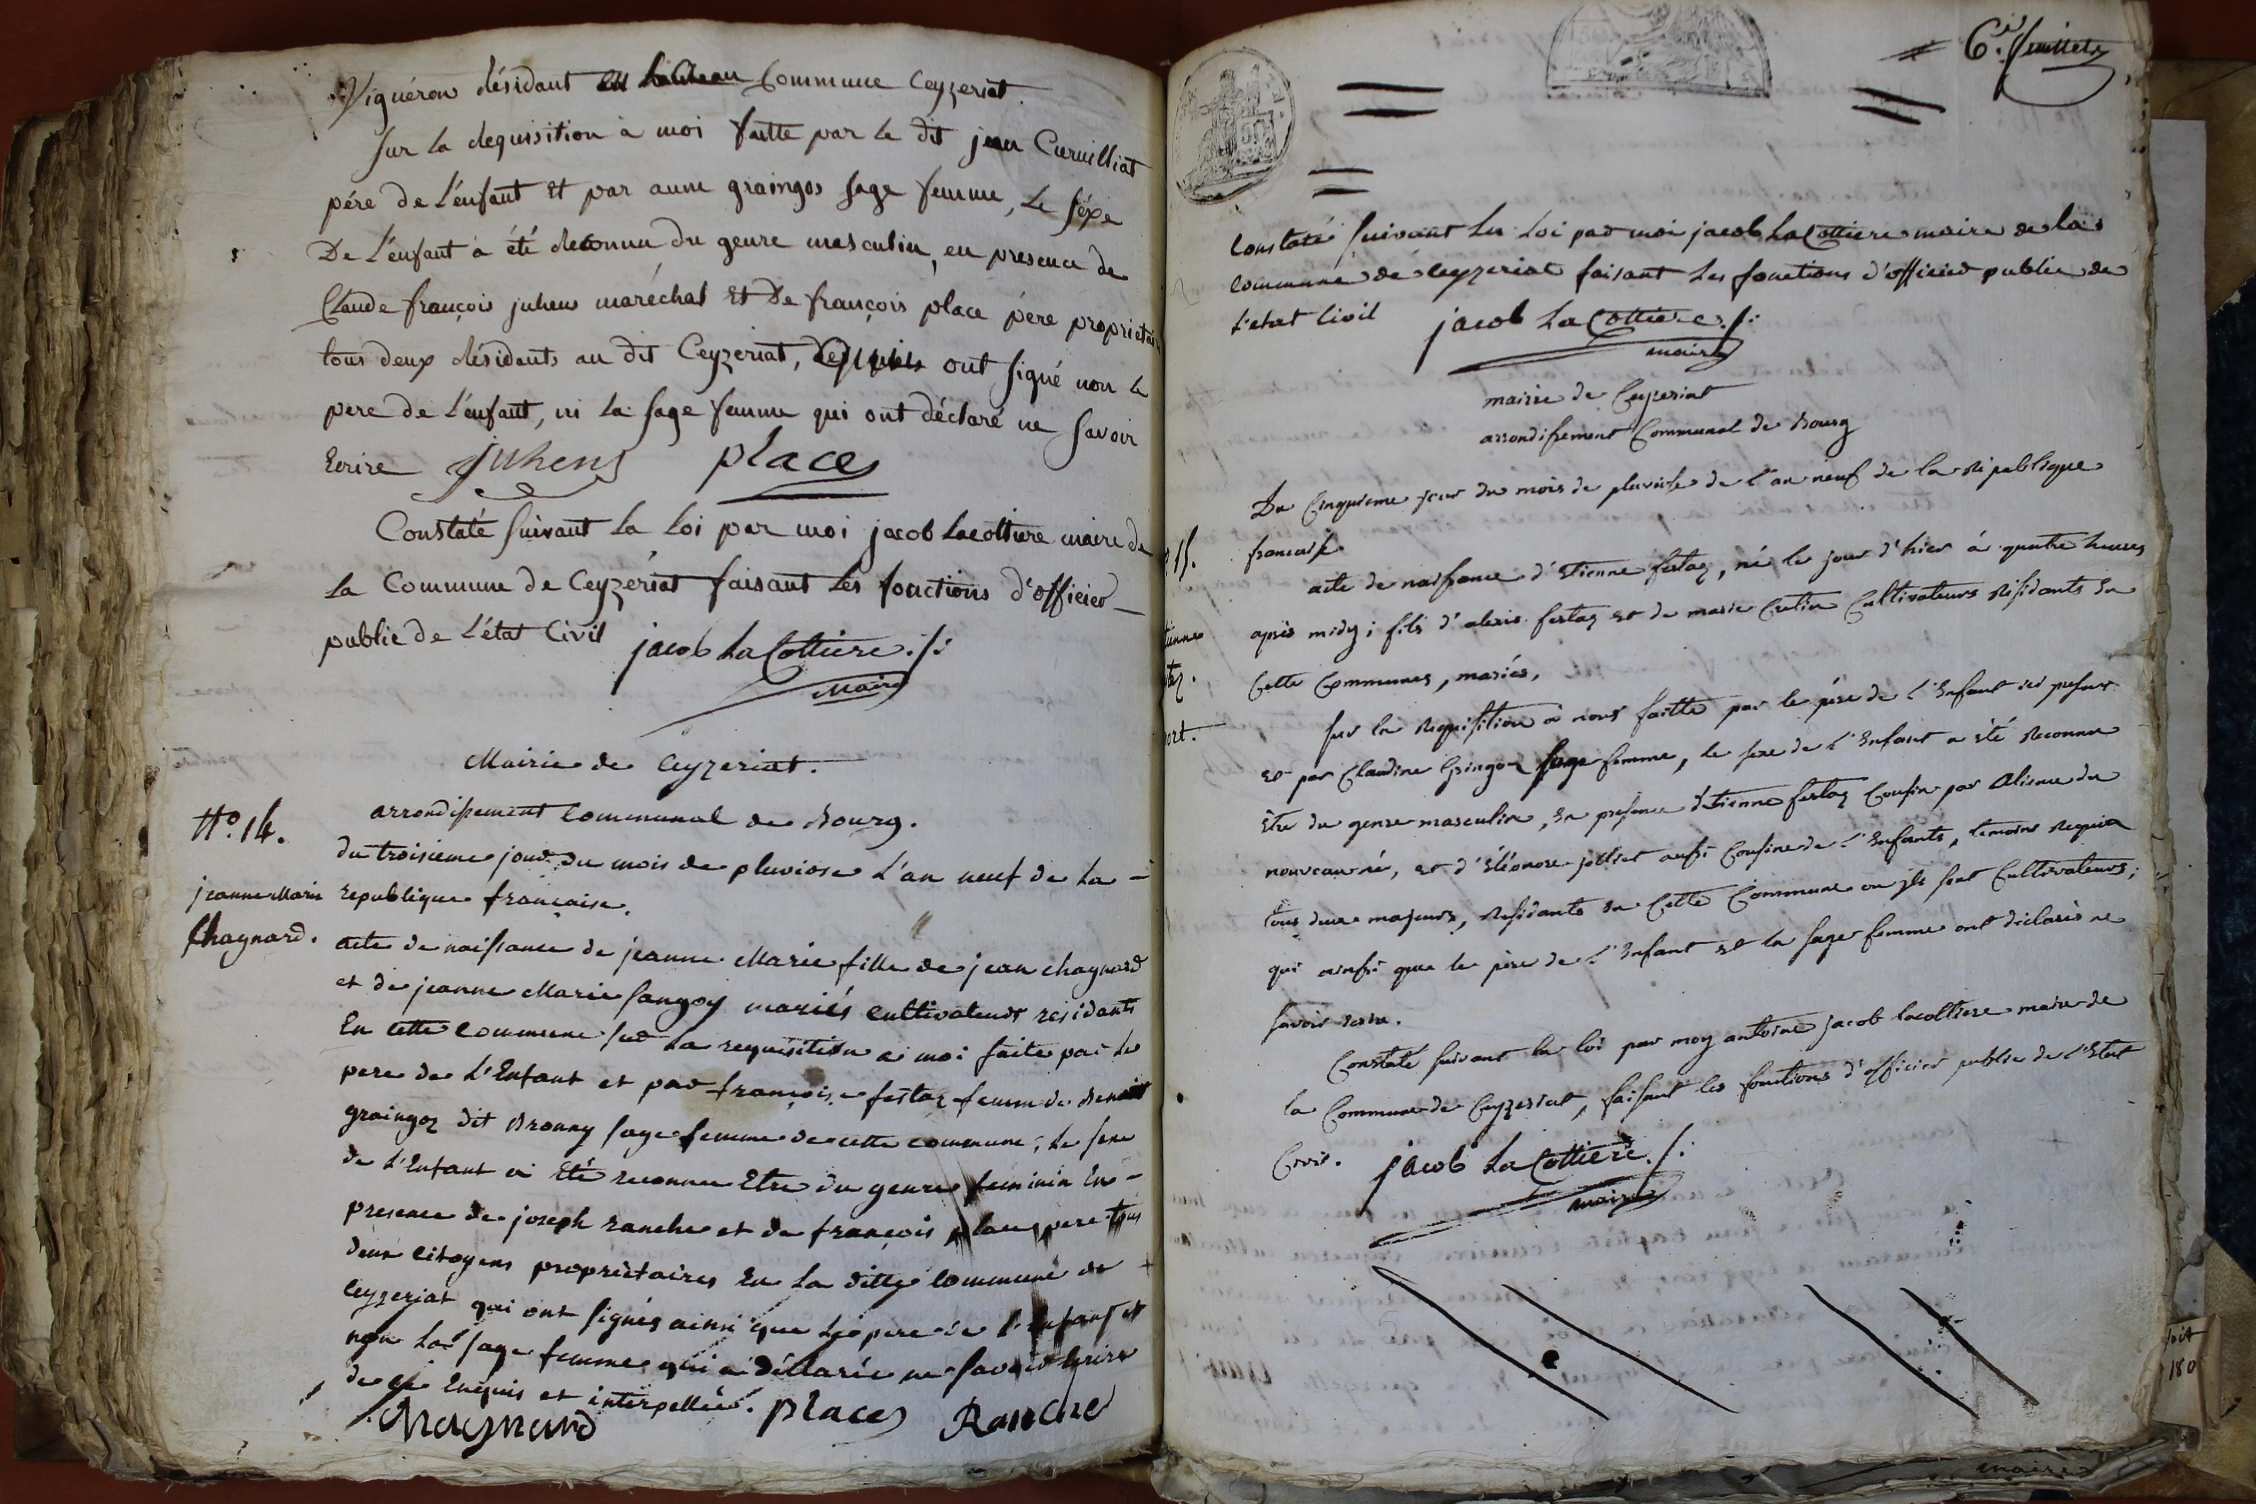 Viguéron résidant en Commune Ceyzeriat.
sur la requisition à moi faitte par le dit jean Curnilliat
pére de L'énfant et par anne graingos sage femme, Le séxe
De L'énfant à été reconnu du genre masculin, en presence de
Claude françois juhen maréchal et De françois place pére proprietai
tous deux résidents au dit Ceyzeriat, ont signé non le
pere de L'énfant, ni la sage femme qui ont déclaré ne savoir
Ecrire juhens place
Constaté suivant La Loi par moi jacob Lacottiere maire de
La Commune de Ceyzériat faisant Les fonctions d'officier
public de L'état Civil jacob La Cottiere ./:
Maire
Mairie de Ceyzeriat.
N° 14.
arrondissement communal de Bourg.
du troisieme jour du mois de pluviose L'an neuf de La -
jeanne Marie
republique française.
Chagnard.
acte de naissance de jeanne Marie fille de jean chagnard
et de jeanne Marie sangoy mariés cultivateurs residants
En cette commune sur La requisition a moi faite par Le
pere de L'Enfant et par françoise festaz femme de Benoit
graingoz dit Bronny sage femme de cette commune, Le sexe
de L'Enfant a Eté reconnu Etre du genre feminin En -
presence de joseph ranche et de françois place pere tous
deux citoyens propriétaires En La ditte commune de
Ceyzeriat qui ont signés ainsi que Le pere de L'Enfant et
non La sage femme qui a déclarée ne savoir Ecrire
de ce Enquis et interpellée. place Ranche
Chagnard
6e. feuillet
Constaté suivant La Loi par moi jacob La Cottiere maire de la
commune de Ceyzeriat faisant Les fonctions d'officier public de
L'etat Civil jacob La Cottiere ./:
maire
mairie de Ceyzeriat
arrondissement Communal de Bourg
Du Cinquieme jour du mois de pluviose de l'an neuf de la Republique
15.
francaise
acte de naissance d'Etienne festaz, né le jour d'hier à quatre heures
tienne
après midy; fils d'alexis festaz et de marie Cutin Cultivateurs Residants en
taz.
Cette Commune, mariés.
ort.
sur la Requisition à nous faitte par le pére de l'Enfant ici present
et par Claudine Gringoz sage femme, le sexe de l'Enfant a été Reconnu
être du genre masculin, en presence d'Etienne festaz Cousin par aliance du
nouveau né, et d'Eléonore jolliet aussi Cousine de l'Enfant, temoins Requis
tous deux majeurs, Residants en Cette Commune ou ils sont Cultivateurs,
qui ainsi que le pére de l'Enfant et la sage femme ont déclarés ne
savoir ecrire.
Constaté suivant la loi par moy antoine jacob lacottiere maire de
la Commune de Ceyzeriat, faisant les fonctions d'officier public de l'Etat
Civil. jacob La Cottiere ./:
maire
soit
180
maire